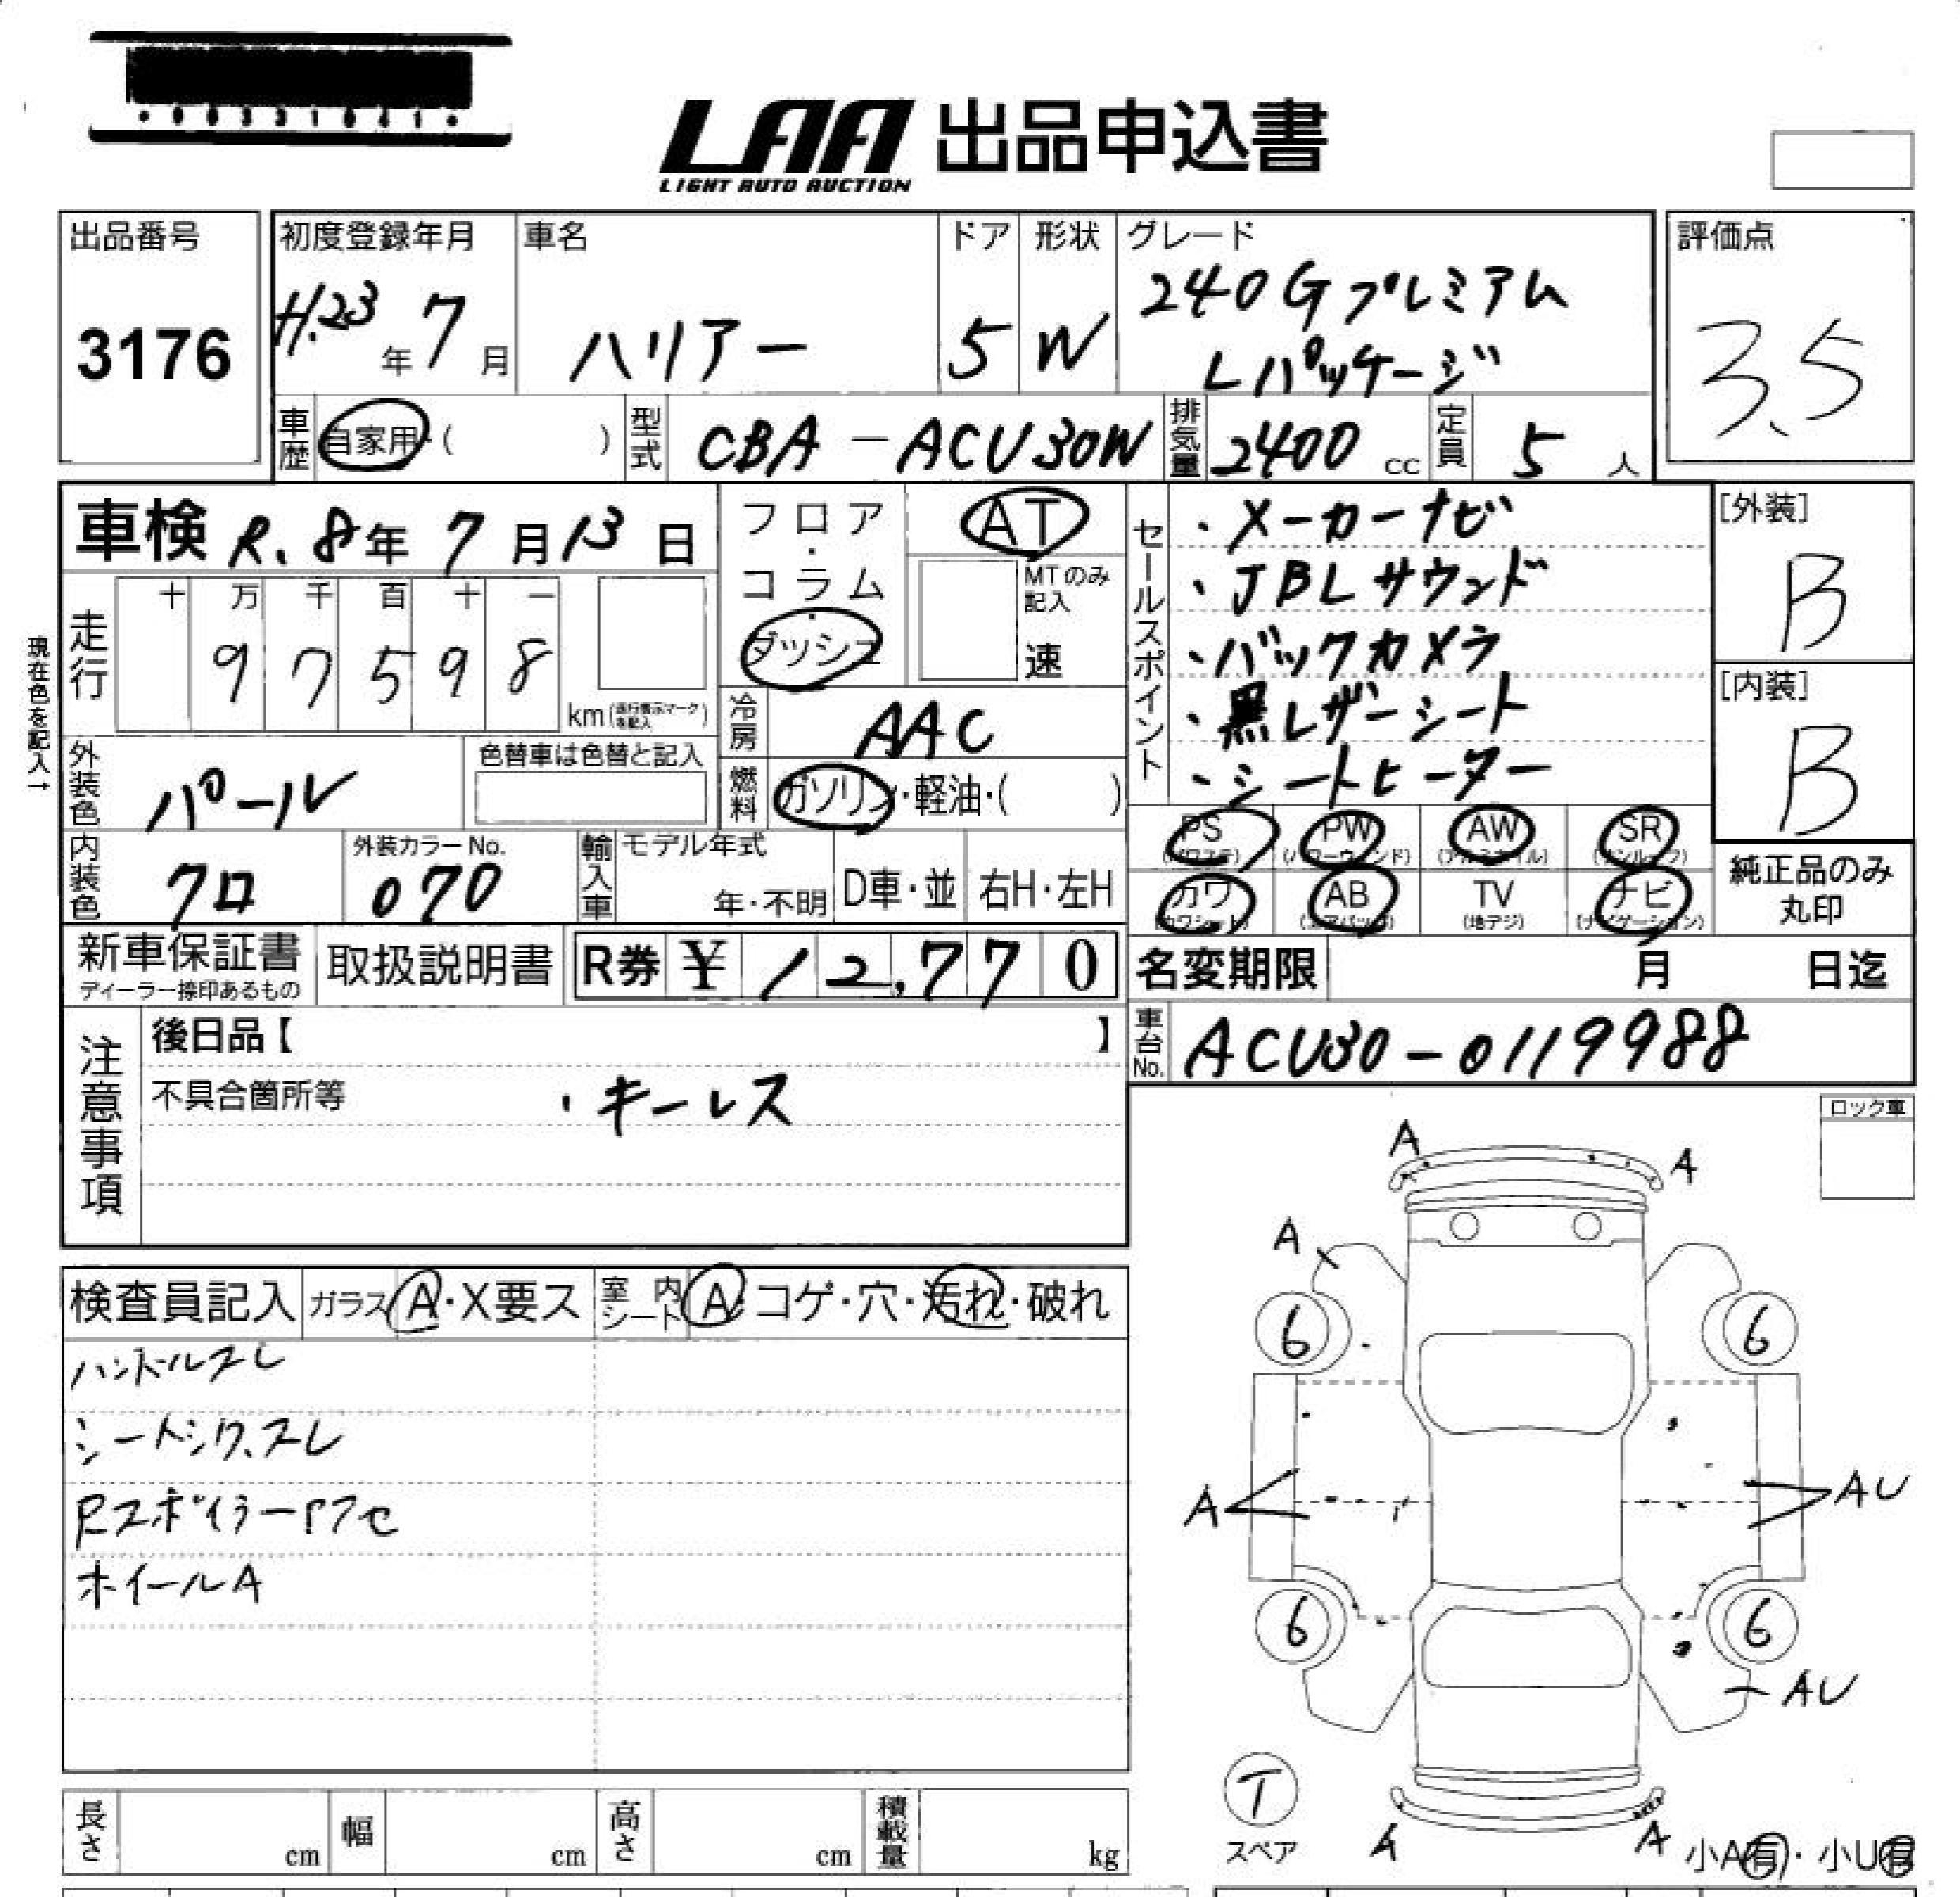 ・00331041・
LAA 出品申込書
LIGHT AUTO AUCTION
出品番号
3176
初度登録年月
H.23年7月
車名
ハリアー
ドア
5
形状
W
グレード
240Gプレミアム
Lパッケージ
評価点
3.5
車歴
自家用・( )
型式
CBA-ACU30W
排気量
2400 cc
定員
5 人
車検 R.8年7月13日
フロア・コラム・ダッシュ
AT
MTのみ記入
速
セールスポイント
・メーカーナビ
・JBLサウンド
・バックカメラ
・黒レザーシート
・シートヒーター
[外装]
B
[内装]
B
現在色を記入→
走行
十 万 千 百 十 一
9 7 5 9 8
km(走行表示マークを記入)
冷房
AAC
外装色
パール
色替車は色替と記入
燃料
ガソリン・軽油・( )
PS (パワステ)
PW (パワーウィンド)
AW (アルミホイル)
SR (サンルーフ)
カワ (カワシート)
AB (エアバッグ)
TV (地デジ)
ナビ (ナビゲーション)
純正品のみ
丸印
内装色
クロ
外装カラーNo.
070
輸入車
モデル年式
年・不明
D車・並
右H・左H
新車保証書
ディーラー捺印あるもの
取扱説明書
R券 ¥ 12,770
名変期限 月 日迄
車台No.
ACU30-0119988
注意事項
後日品【 】
不具合箇所等
・キーレス
ロック車
検査員記入
ガラス A・X要ス
室内シート A・コゲ・穴・汚れ・破れ
ハンドルスレ
シートシワ、スレ
Rスポイラーアセ
ホイールA
A
A
A
6
6
A
AU
6
6
AU
T
スペア
A
A
小A有・小U有
長さ cm
幅 cm
高さ cm
積載量 kg